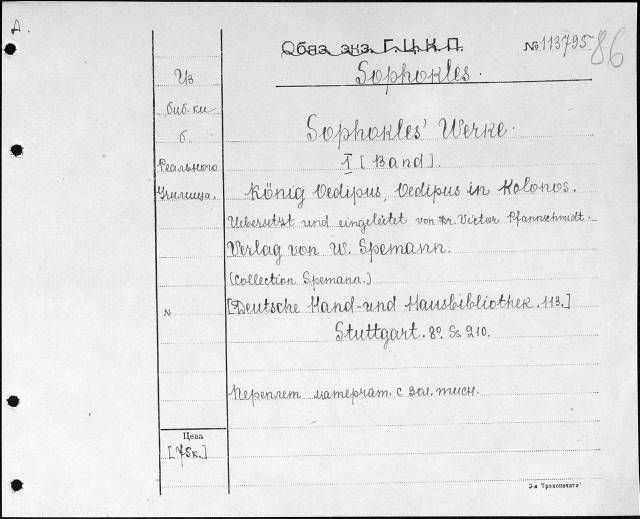 А.
Обяз. экз. Г.Ц.К.П.
№113795.
86
Sophokles.
Из
биб-ки
б.
Реального
Училища.
Sophokles' Werke.
I [Band].
König Oedipus, Oedipus in Kolonos.
Uebersetzt und eingeleitet von Dr. Victor Pfannschmidt.
Verlag von W. Spemann.
(Collection Spemann.)
№
[Deutsche Hand-und Hausbibliothek. 113.]
Stuttgart. 8º. Ss 210.
Переплет матерчат. с зол. тисн.
Цена
[75к.]
3-я Трокопечата